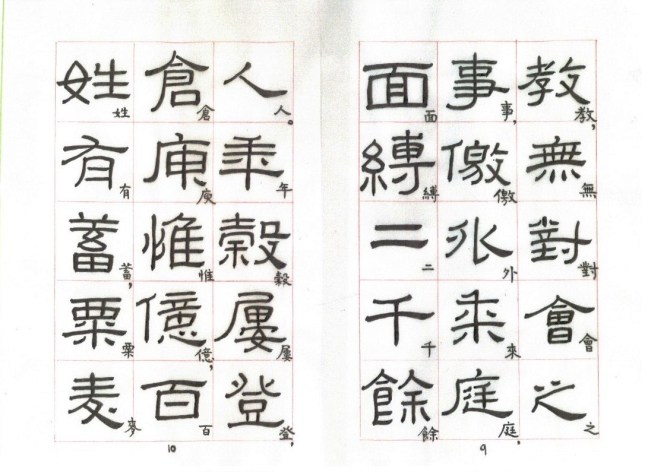 教無對會之
教，無對會之
事儌外來庭
事，儌外來庭，
面縛二千餘
面縛二千餘
9
人年穀屢登
人。年穀屢登，
倉庾惟億百
倉庾惟億，百
姓有蓄粟麥
姓有蓄，粟麥
10